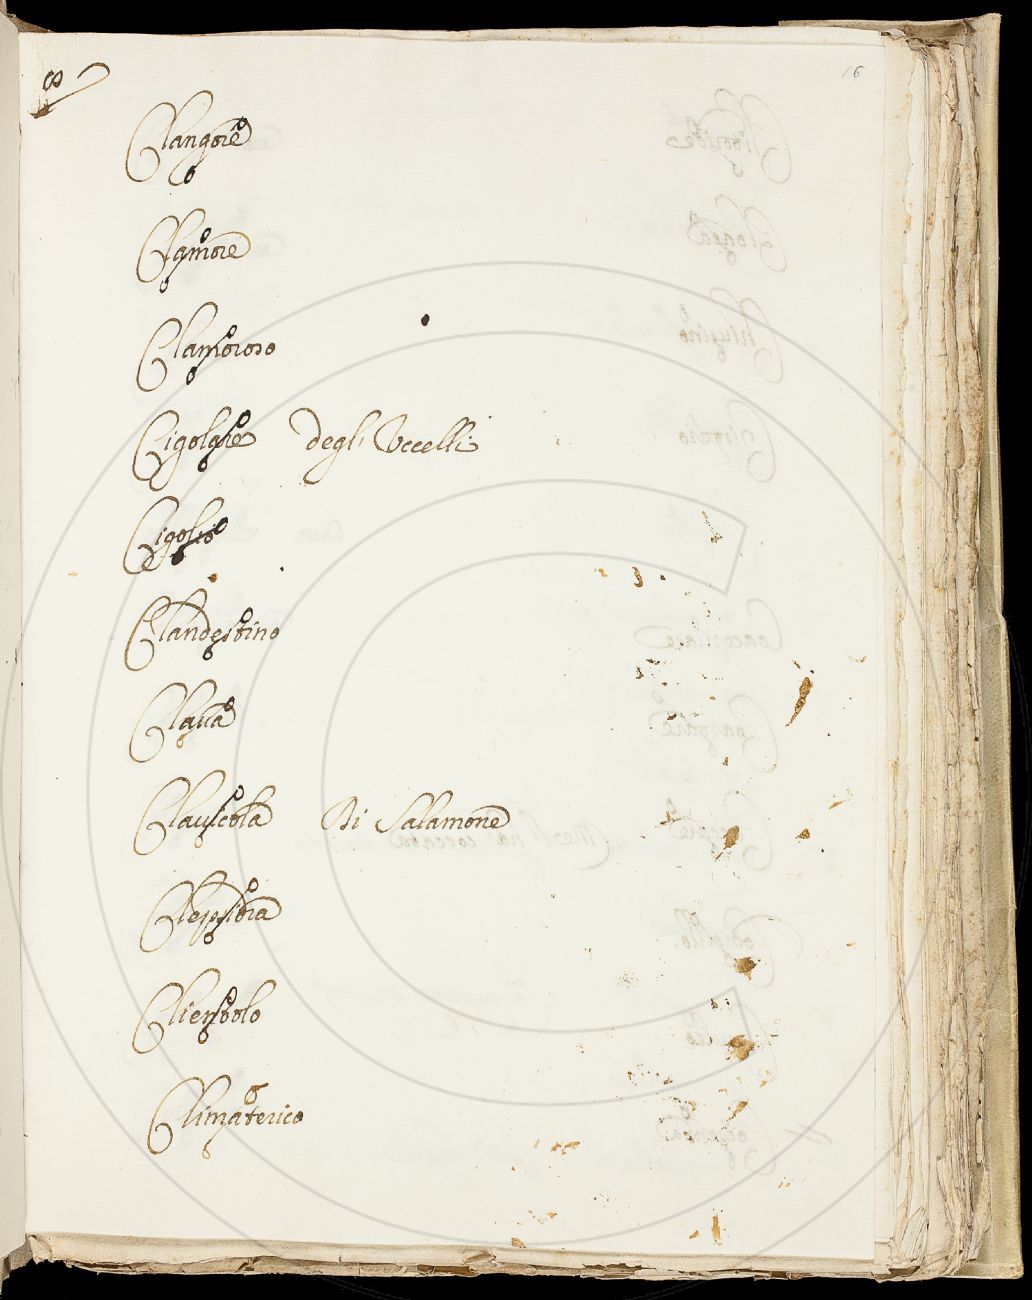 16
Clangore
Clamore
Clamoroso
Cigolare degli Uccelli
Cigolio
Clandestino
Clausola Di Salamone
Clepsidra
Clientolo
Climaterico